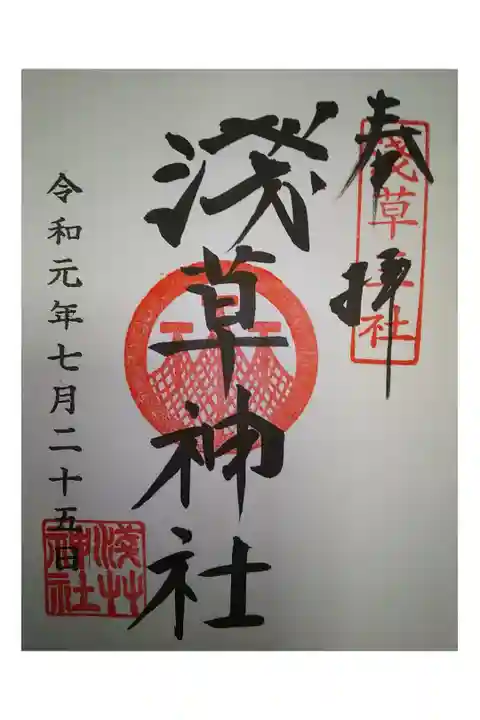 奉拝
浅草三社
浅草神社
令和元年七月二十五日
浅艸神社